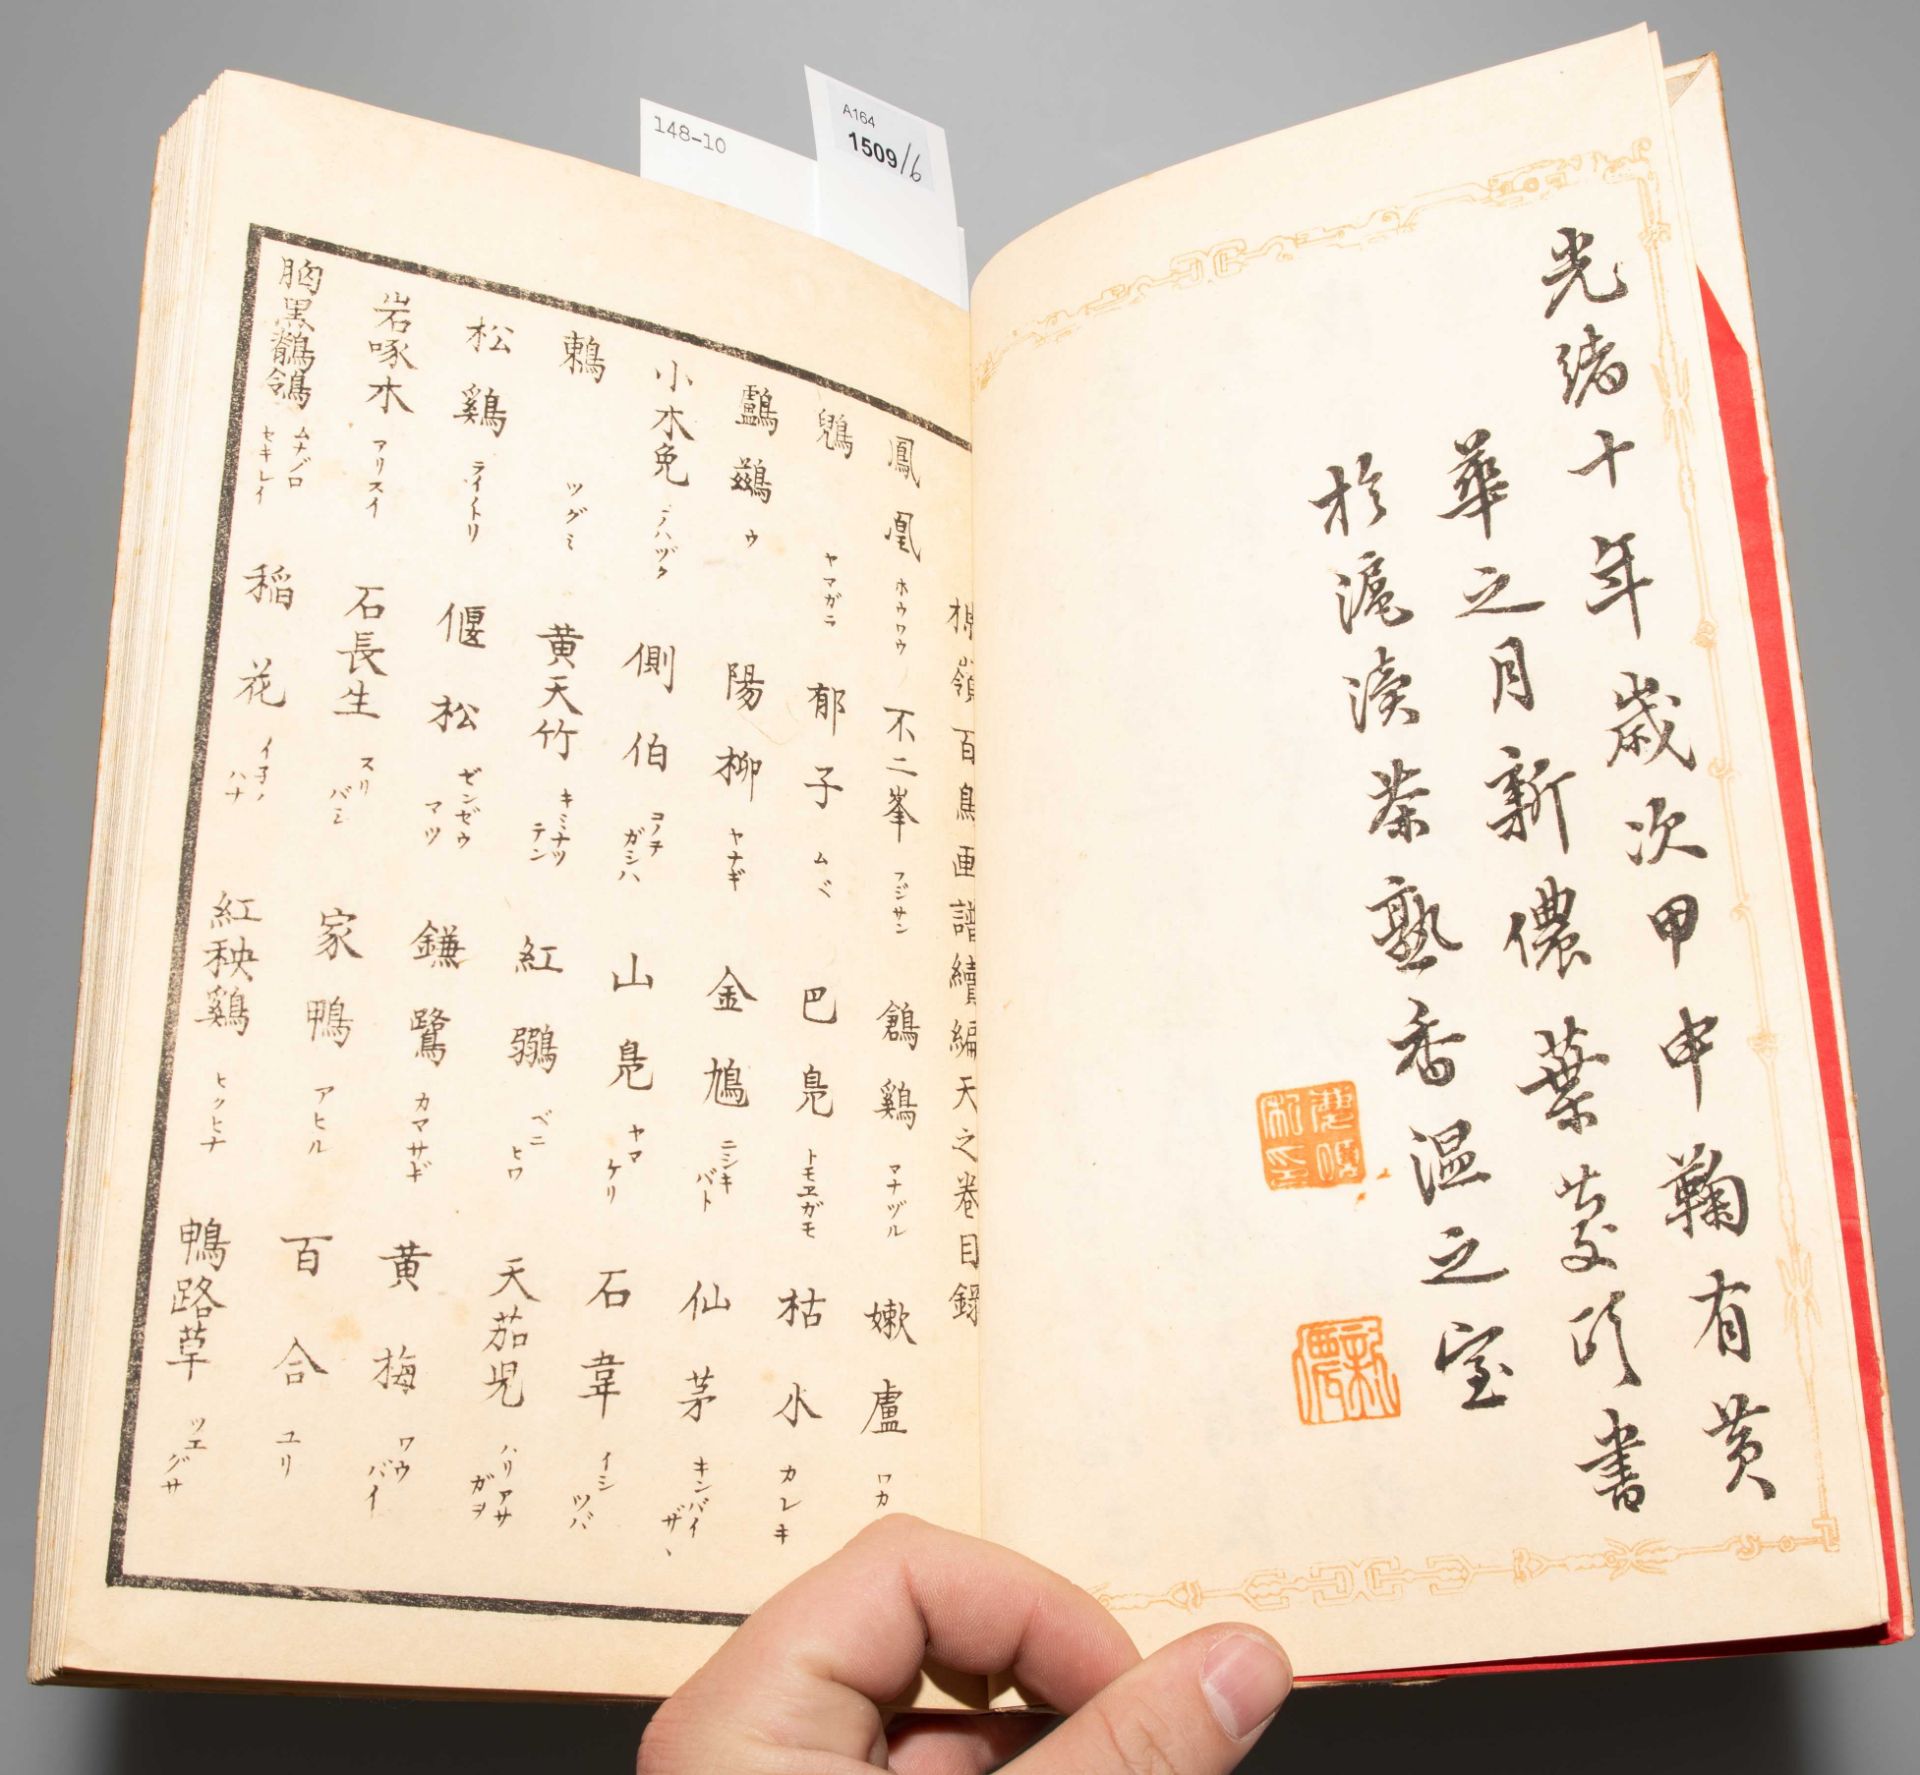 148-10
A164
1509/6
光緒十年歲次甲申鞠有黄
華之月新儂葉慶頤書
於滬瀆茶熟香温之室
新儂
楳嶺百鳥画譜續編天之巻目録
鳳凰 ホウワウ 不二峯 フジサン 鶬鷄 マナヅル 嫰蘆 ワカ
鶃 ヤマガニ 郁子 ムベ 巴鳧 トモヱガモ 枯木 カレキ
鸕鷀 ウ 陽柳 ヤナギ 金鳩 ニシキバト 仙茅 キンバイザヽ
小木兎 コノハヅク 側伯 コノテガシハ 山鳧 ヤマケリ 石韋 イシツバ
鶫 ツグミ 黄天竹 キミナツテン 紅鶸 ベニヒワ 天茄児 ハリアサガヲ
松鷄 ライトリ 偃松 ゼンゼウマツ 鎌鷺 カマサギ 黄梅 ワウバイ
岩啄木 アリスイ 石長生 スリバシ 家鴨 アヒル 百合 ユリ
胸黒鶺鴒 ムナグロセキレイ 稲花 イネノハナ 紅秧鷄 ヒクヒナ 鴨路草 ツユグサ